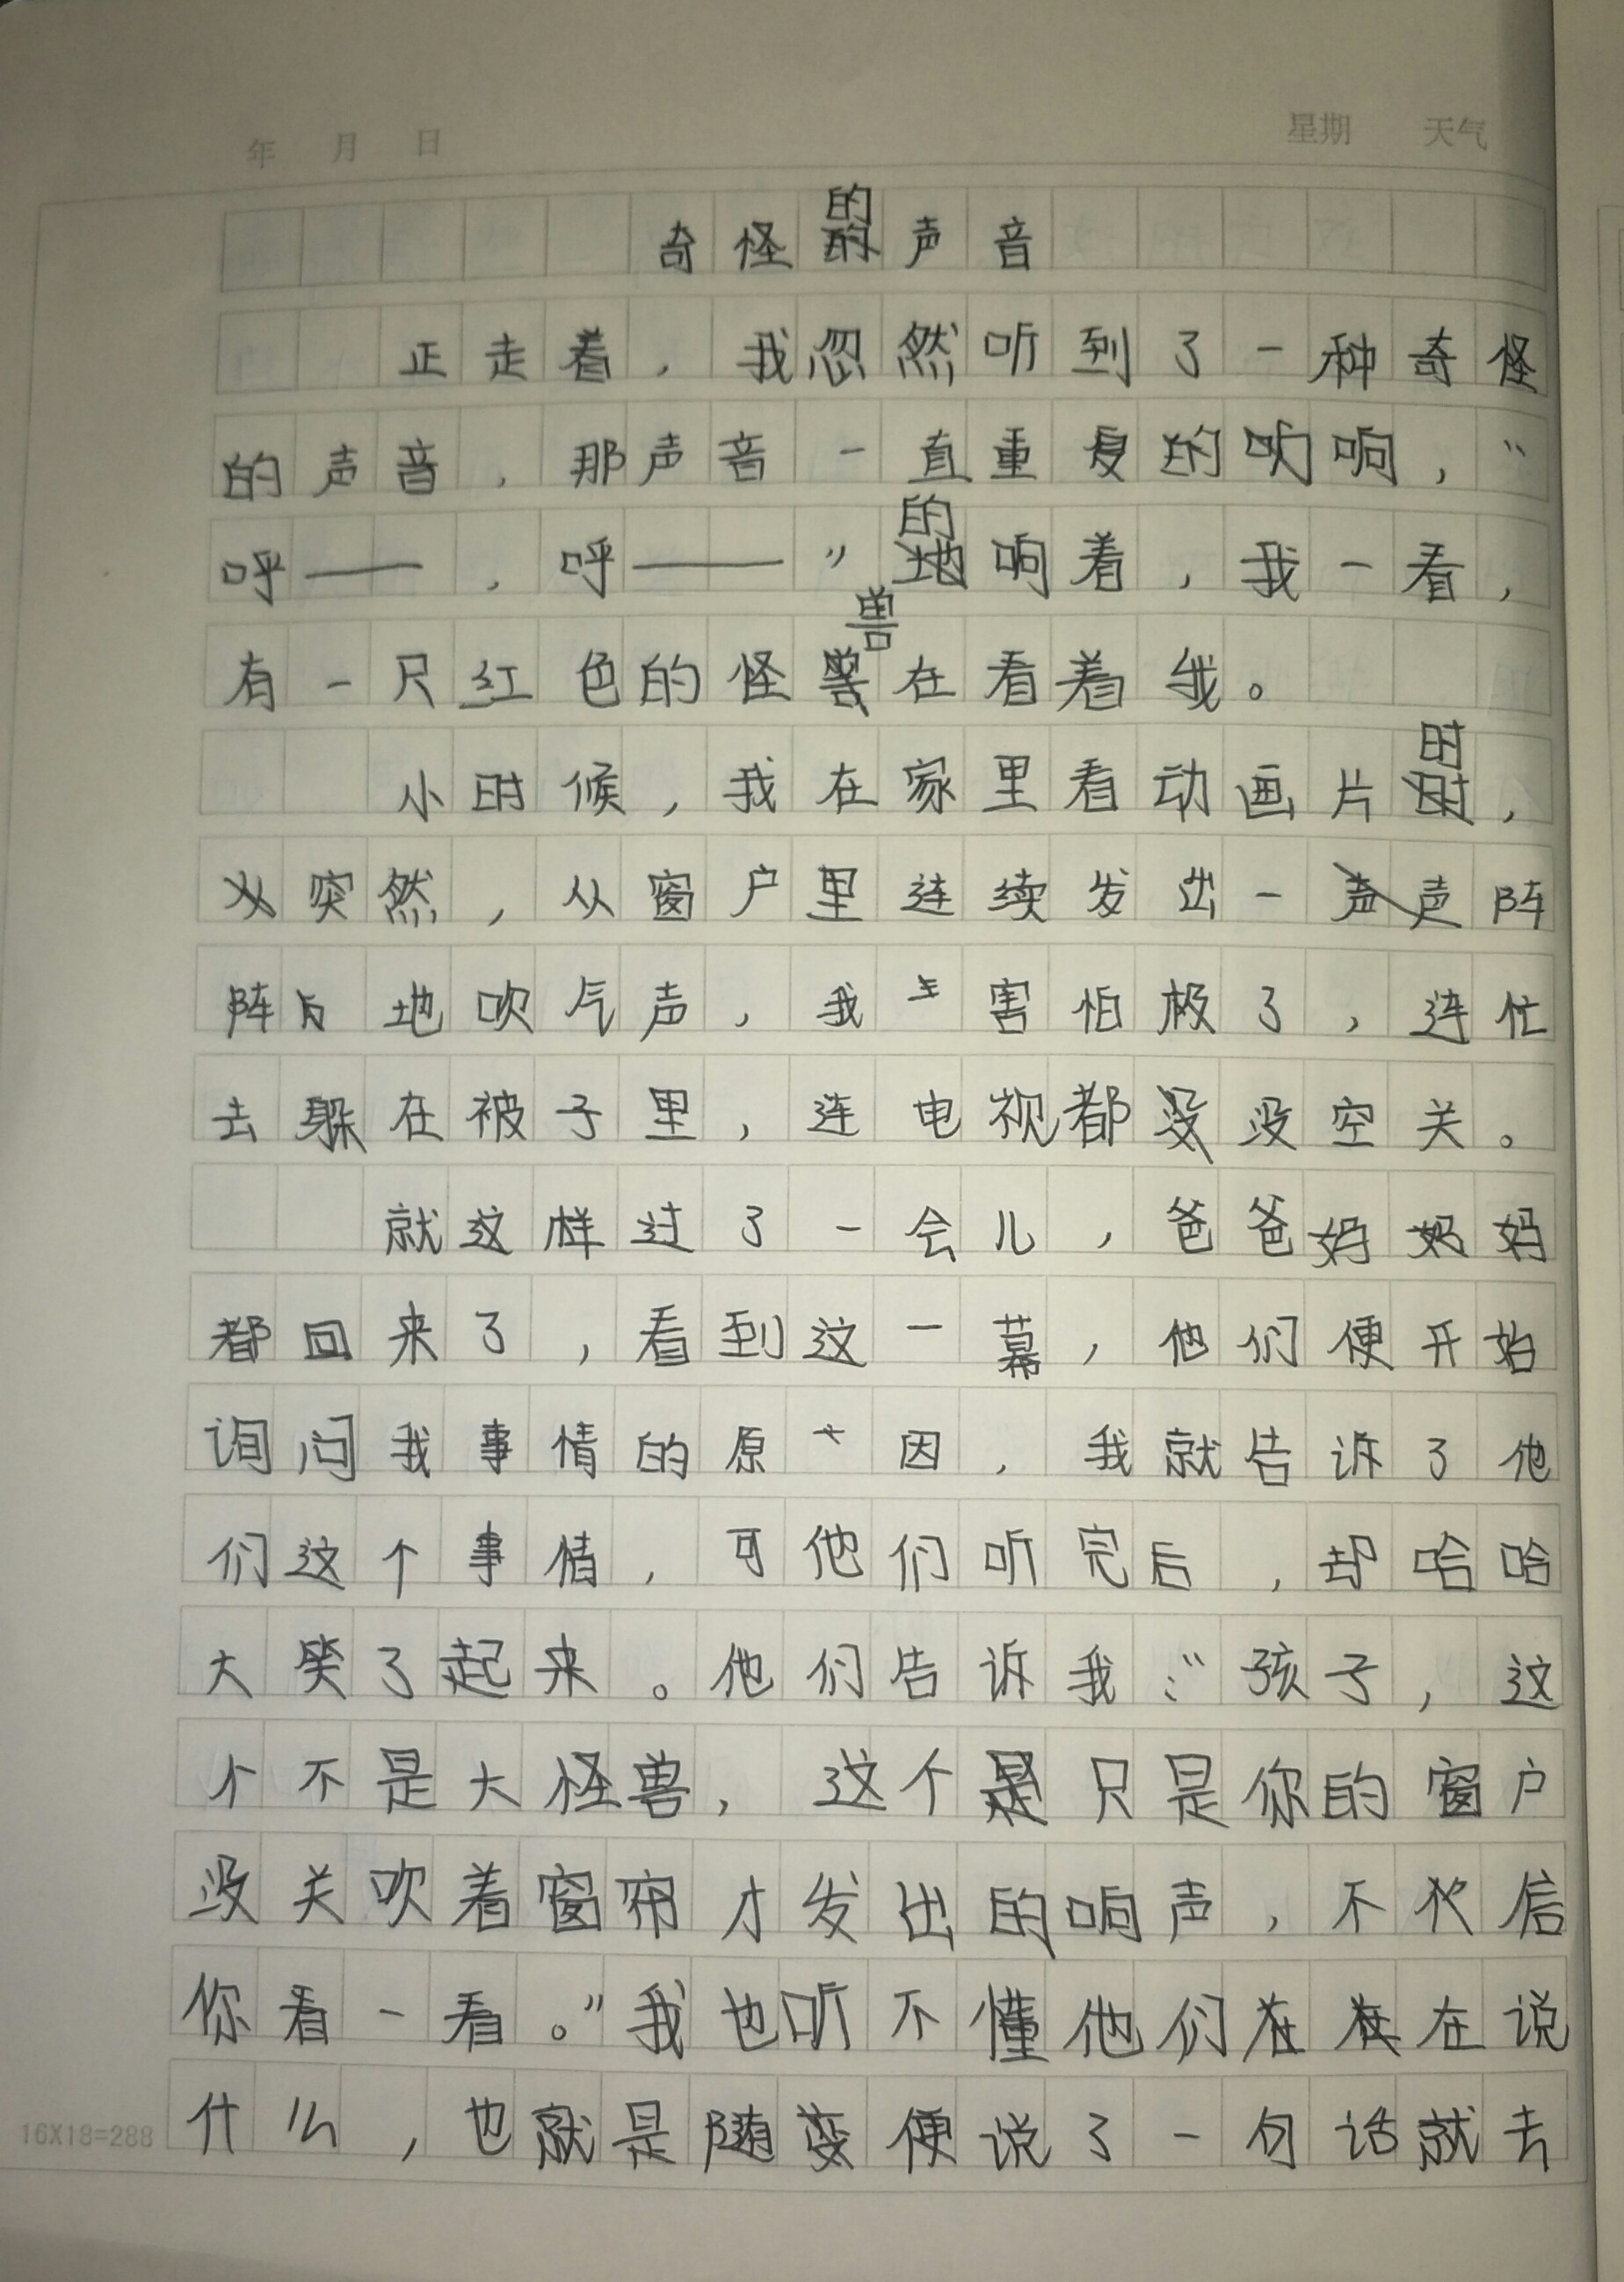 年 月 日 星期 天气
奇怪的声音
正走着，我忽然听到了一种奇怪
的声音，那声音一直重复的吹响，“
呼——，呼——”的响着，我一看，
有一尺红色的怪兽在看着我。
小时候，我在家里看动画片时，
突然，从窗户里连续发出一声阵
阵地吹气声，我害怕极了，连忙
去躲在被子里，连电视都没空关。
就这样过了一会儿，爸爸妈妈
都回来了，看到这一幕，他们便开始
询问我事情的原因，我就告诉了他
们这个事情，可他们听完后，却哈哈
大笑了起来。他们告诉我：“孩子，这
个不是大怪兽，这个只是你的窗户
没关吹着窗帘才发出的响声，不信
你看一看。”我也听不懂他们在说
什么，也就是随便说了一句话就去
16X18=288